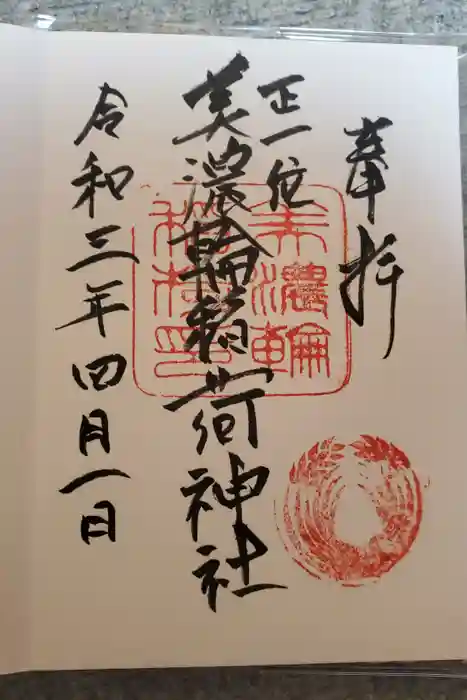 奉拝
正一位
美濃輪稲荷神社
令和三年四月一日
美濃輪